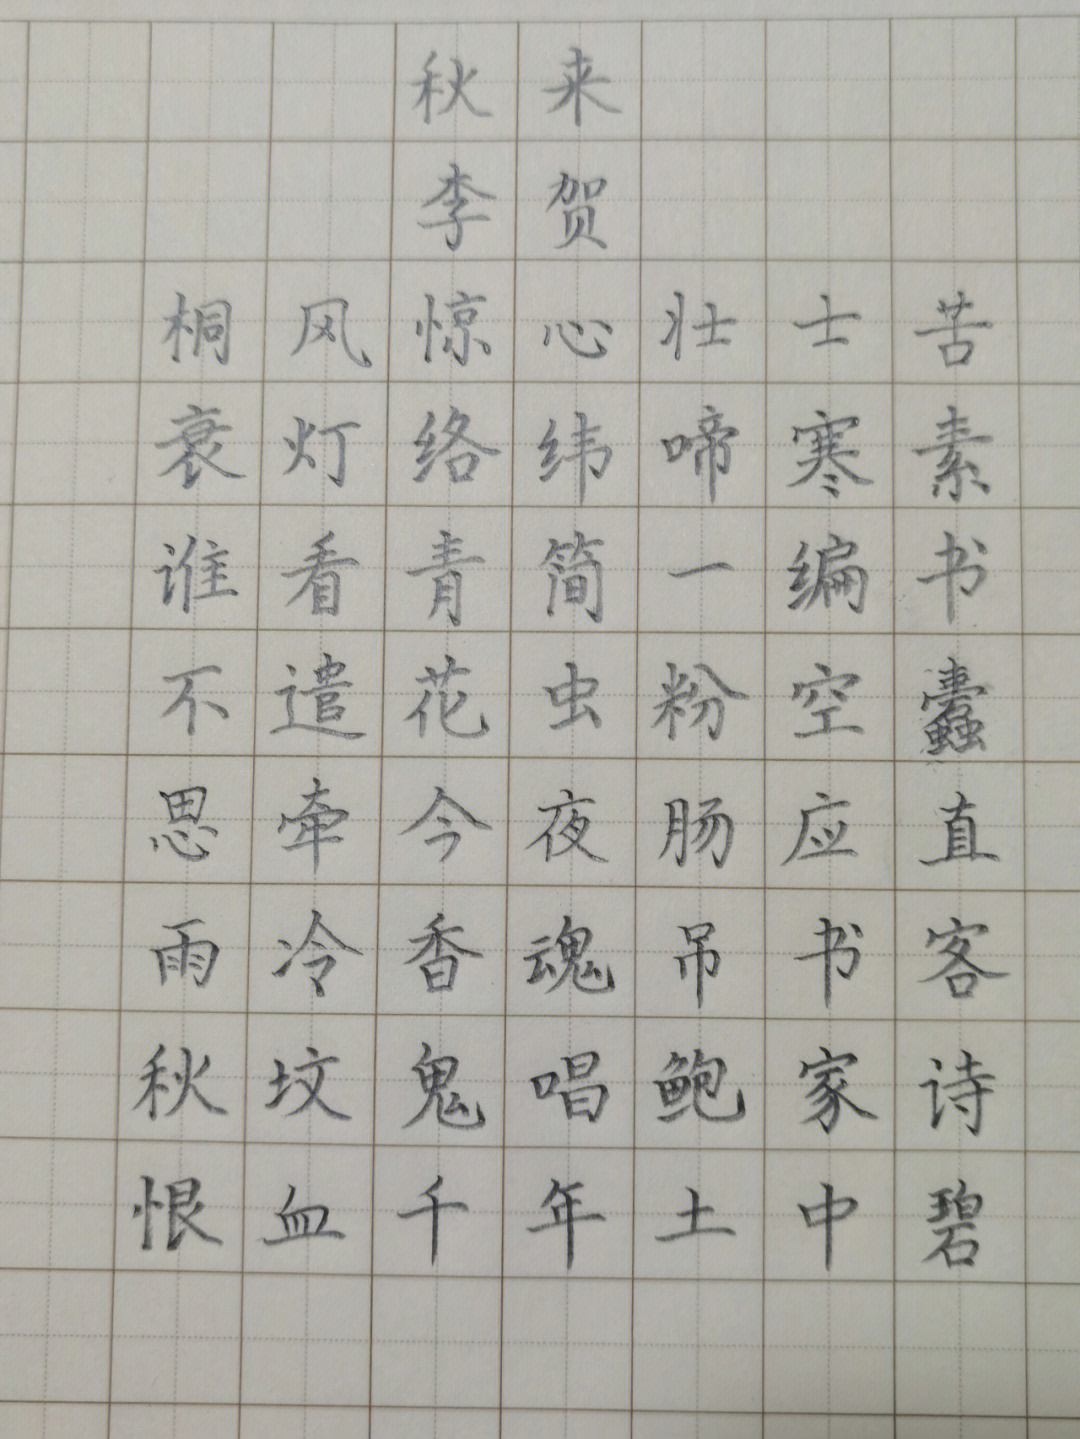 秋来
李贺
桐风惊心壮士苦
衰灯络纬啼寒素
谁看青简一编书
不遣花虫粉空蠹
思牵今夜肠应直
雨冷香魂吊书客
秋坟鬼唱鲍家诗
恨血千年土中碧